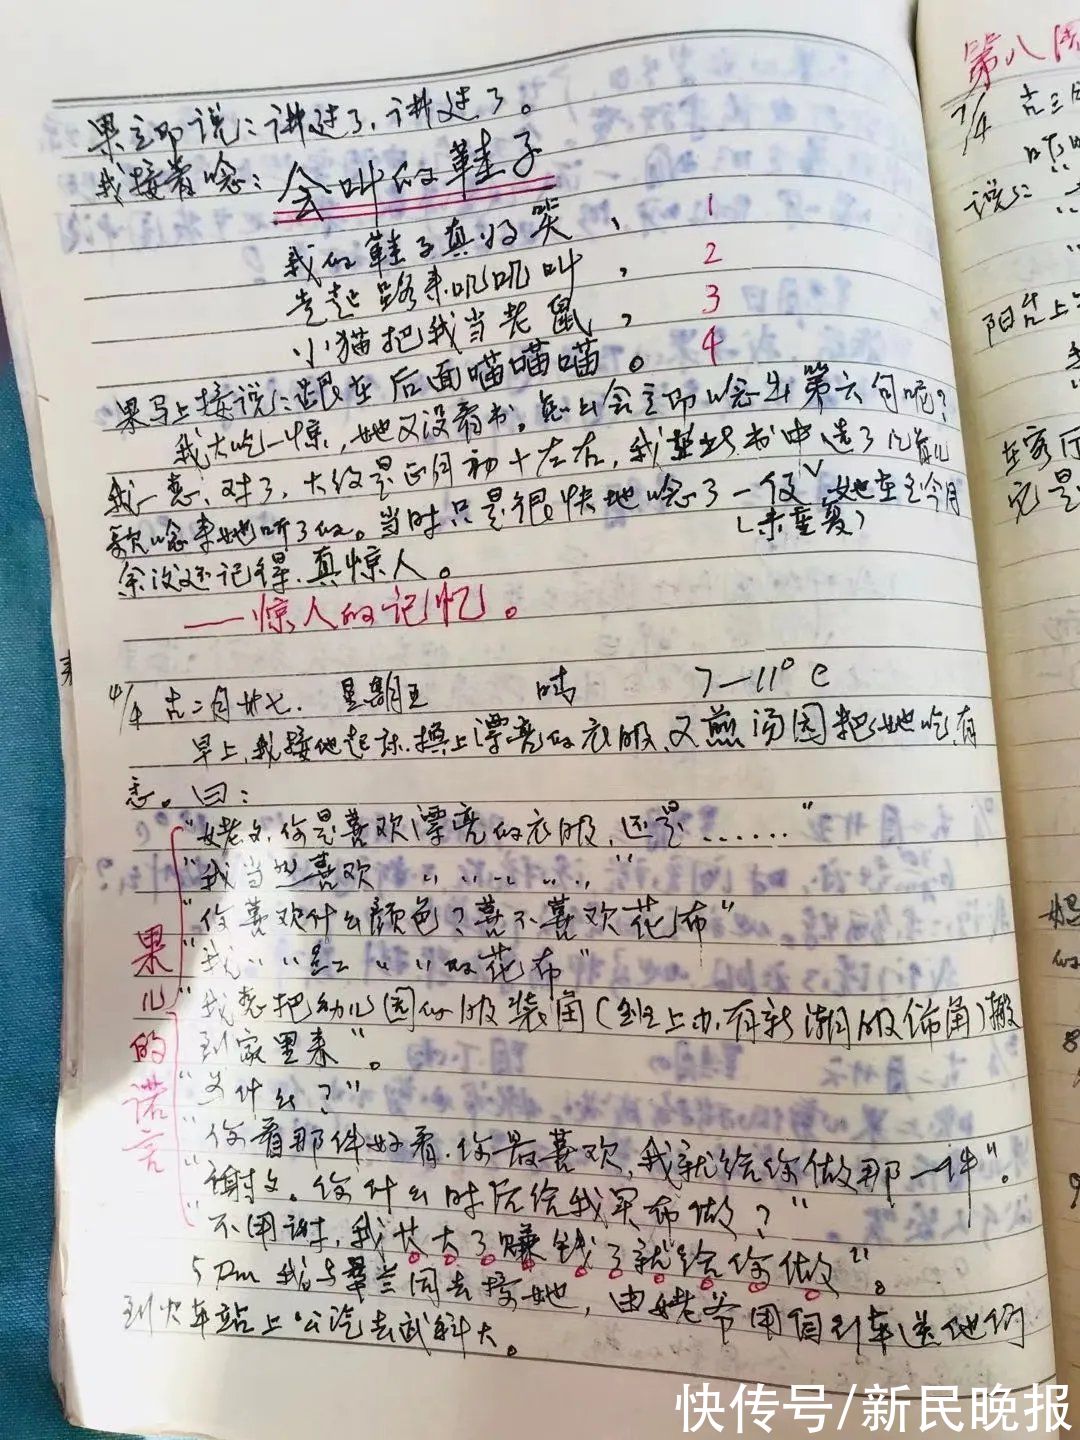 果立即说：讲过了，讲过了。
我接着唸：会叫的鞋子
我的鞋子真好笑， 1
走起路来叽叽叫， 2
小猫把我当老鼠， 3
跟在后面喵喵喵。 4
果马上接说：
我大吃一惊，她又没看书。怎么会立即唸出第六句呢？
我一想，对了，大约是正月初十左右，我从书中选了几首儿
歌唸来她听了的。当时只是很快地唸了一仅，她在至今月
（未重复）
余没还记得，真惊人。
——惊人的记忆。
4/4 古二月廿七. 星期五 晴 7—11°C
早上，我接她起床，换上漂亮的衣服，又煎汤圆把她吃，有
意。曰：
"姥姥，你是喜欢漂亮的衣服，还是……"
"我当然喜欢 〃〃〃〃〃"
"你喜欢什么颜色？喜不喜欢花布"
"我〃〃红〃〃的花布"
"我想把幼儿园的服装角（班上办，有新潮服饰角）搬
到家里来"。
"为什么？"
"你看那件好看，你最喜欢，我就给你做那一件"。
"谢谢。你什么时候给我买布做？"
"不用谢，我长大了赚钱了就给你做"。
果儿的诺言
5pm 我与翠兰同去接她，由姥爷用自行车送他们
到火车站上公汽去武科大。
第八周
7/4 古三
说：
阳台上
在客厅
快传号/新民晚报